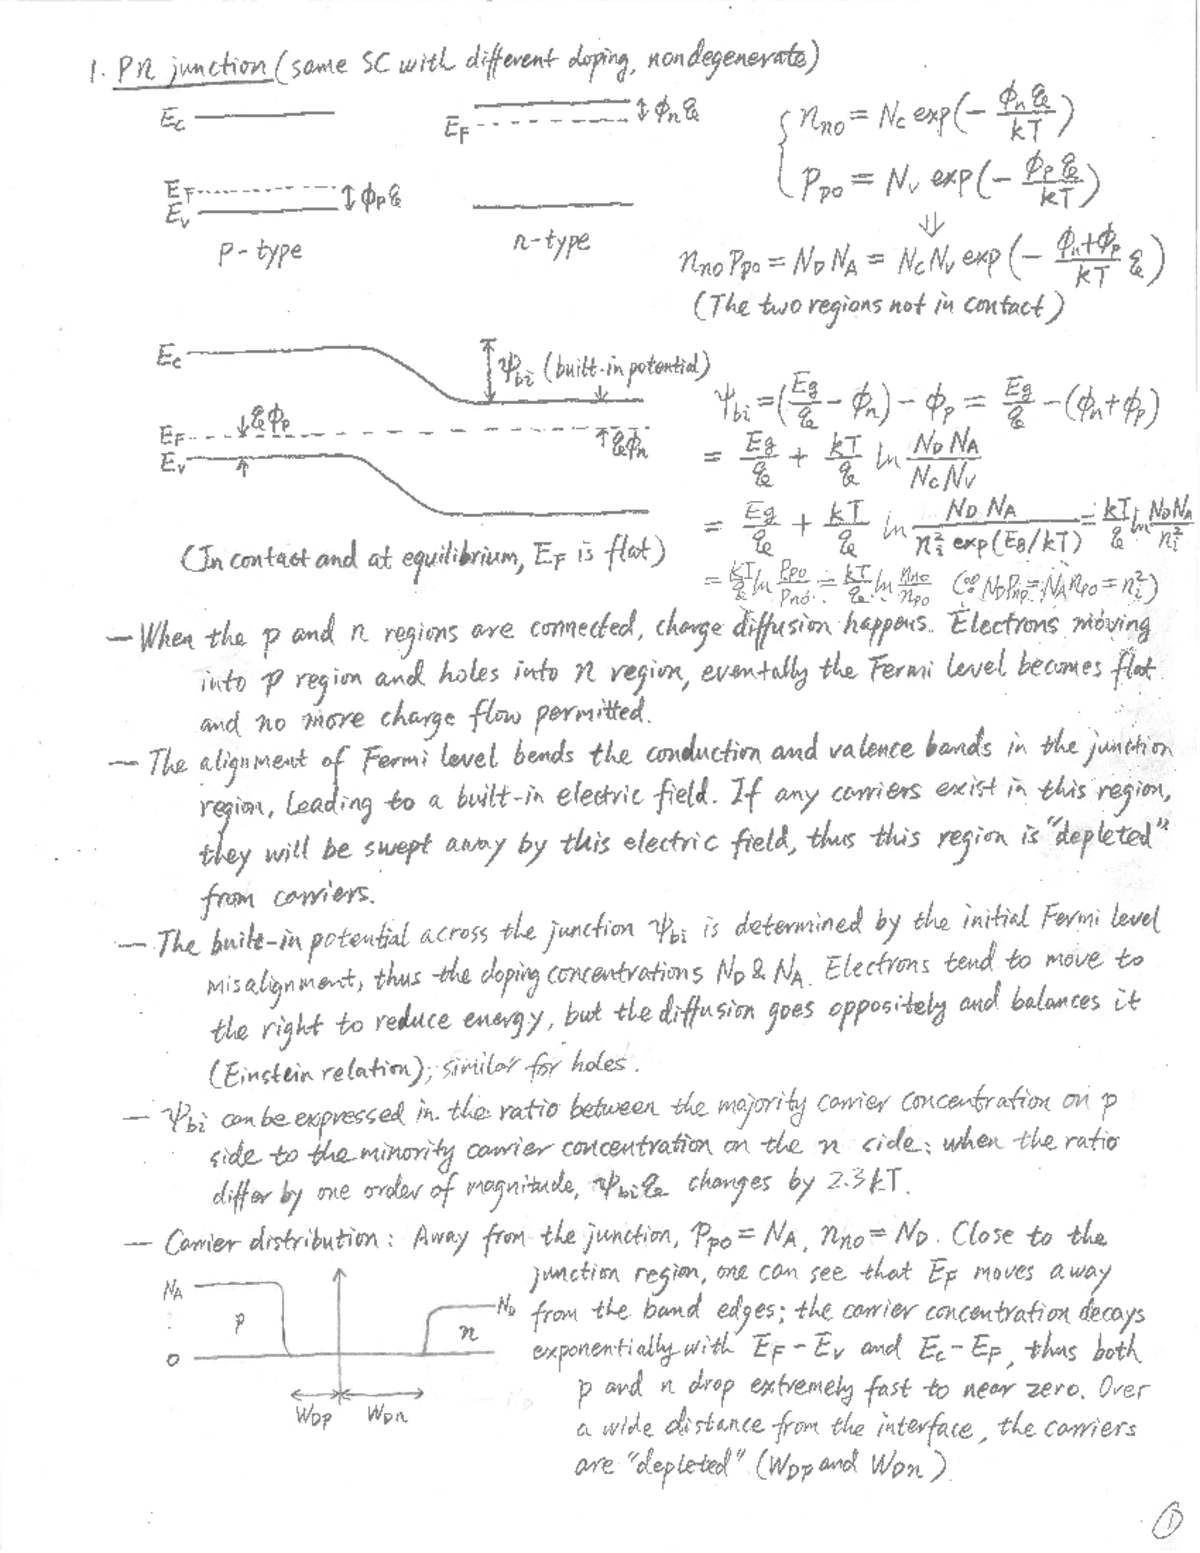 1. Pn junction (same SC with different doping, nondegenerate)
Ec
EF
ϕn q
EF
Ev
ϕp q
p-type
n-type
n_no = Nc exp(- ϕn q / kT)
P_po = Nv exp(- ϕp q / kT)
⇓
n_no P_po = ND NA = Nc Nv exp(- (ϕn+ϕp)/kT q)
(The two regions not in contact)
Ec
ψbi (built-in potential)
EF
qϕp
qϕn
Ev
(In contact and at equilibrium, EF is flat)
ψbi = (Eg/q - ϕn) - ϕp = Eg/q - (ϕn+ϕp)
= Eg/q + kT/q ln ND NA / Nc Nv
= Eg/q + kT/q ln ND NA / ni² exp(Eg/kT) = kT/q ln ND NA / ni²
= kT/q ln Ppo/Pno = kT/q ln nno/npo (∵ ND Pno = NA npo = ni²)
— When the p and n regions are connected, charge diffusion happens. Electrons moving
into p region and holes into n region, eventally the Fermi Level becomes flat
and no more charge flow permitted.
— The alignment of Fermi level bends the conduction and valence bands in the junction
region, leading to a built-in electric field. If any carriers exist in this region,
they will be swept away by this electric field, thus this region is "depleted"
from carriers.
— The built-in potential across the junction ψbi is determined by the initial Fermi level
misalignment, thus the doping concentrations ND & NA. Electrons tend to move to
the right to reduce energy, but the diffusion goes oppositely and balances it
(Einstein relation); similar for holes.
— ψbi can be expressed in the ratio between the majority carrier concentration on p
side to the minority carrier concentration on the n side: when the ratio
differ by one order of magnitude, ψbi q changes by 2.3kT.
— Carrier distribution: Away from the junction, Ppo = NA, nno = ND. Close to the
junction region, one can see that EF moves away
from the band edges; the carrier concentration decays
exponentially with EF - Ev and Ec - EF, thus both
p and n drop extremely fast to near zero. Over
a wide distance from the interface, the carriers
are "depleted" (WDp and WDn)
NA
p
0
ND
n
WDp
WDn
1